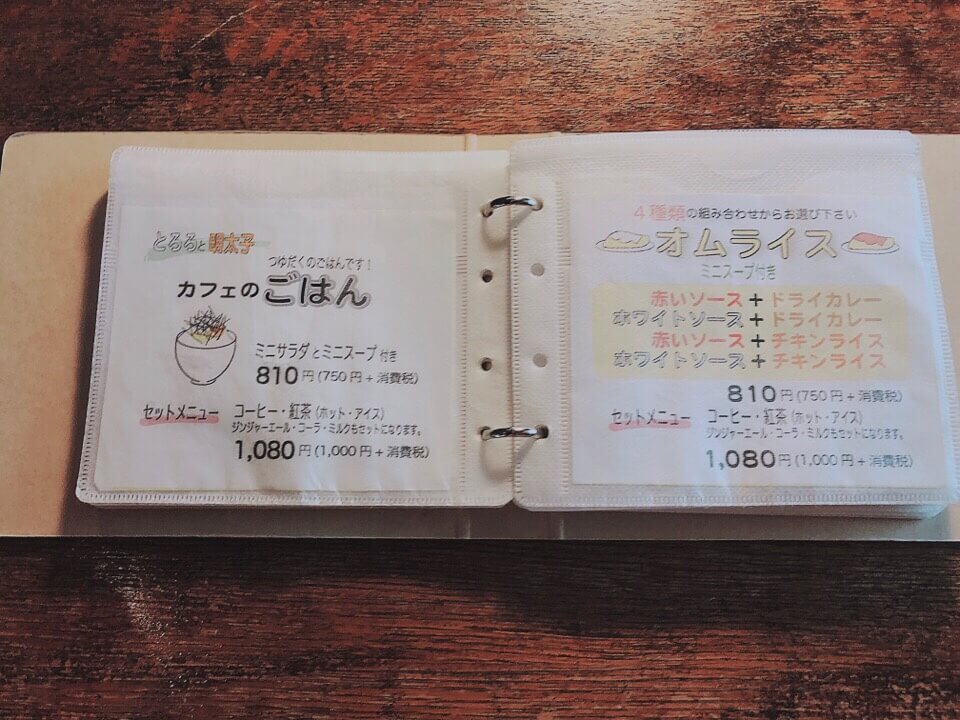 とろろと明太子
つゆだくのごはんです！
カフェのごはん
ミニサラダとミニスープ付き
810円(750円+消費税)
セットメニュー コーヒー・紅茶(ホット・アイス)
ジンジャーエール・コーラ・ミルクもセットになります。
1,080円(1,000円+消費税)
4種類の組み合わせからお選び下さい
オムライス
ミニスープ付き
赤いソース+ドライカレー
ホワイトソース+ドライカレー
赤いソース+チキンライス
ホワイトソース+チキンライス
810円(750円+消費税)
セットメニュー コーヒー・紅茶(ホット・アイス)
ジンジャーエール・コーラ・ミルクもセットになります。
1,080円(1,000円+消費税)